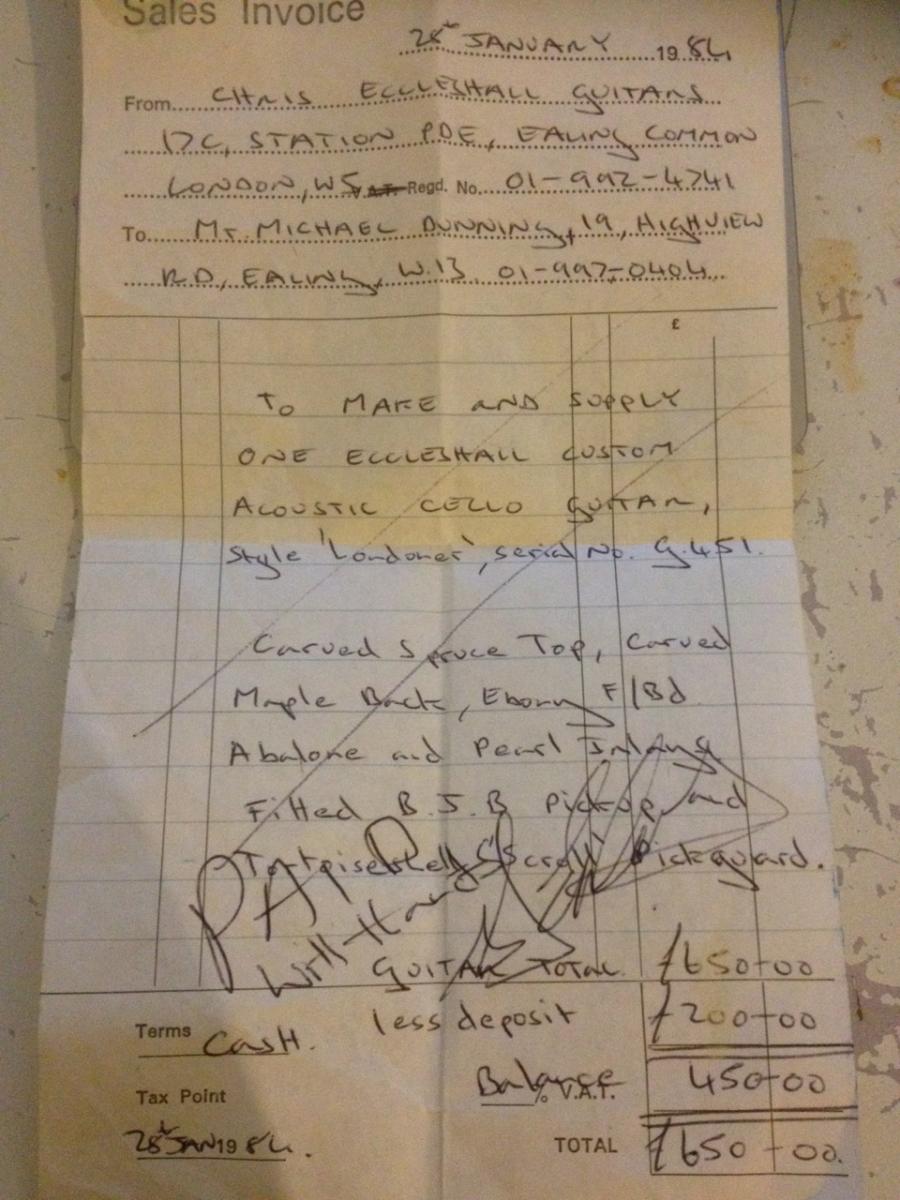 Sales Invoice
28th JANUARY 1984
From CHRIS ECCLESHALL GUITARS
17C, STATION PDE, EALING COMMON
LONDON, W5 V.A.T. Regd. No. 01-992-4741
To Mr. MICHAEL DUNNING, 19, HIGHVIEW
RD, EALING, W.13 01-997-0404
£
TO MAKE AND SUPPLY
ONE ECCLESHALL CUSTOM
ACOUSTIC CELLO GUITAR,
Style 'Londoner', serial No. G.451.
Carved Spruce Top, Carved
Maple Back, Ebony F/Bd
Abalone and Pearl Inlays
Fitted B.J.B Pickup and
Tortoiseshell "Scroll" Pickguard.
PAID
With
GUITAR TOTAL £650-00
less deposit £200-00
Terms Cash.
Balance 450-00
% V.A.T.
Tax Point
28th JAN 1984.
TOTAL £650-00.